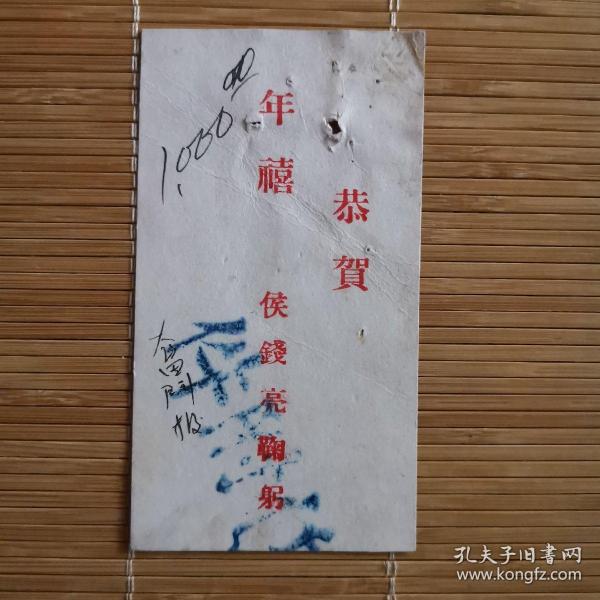 恭賀
年禧
侯錢亮鞠躬
1,000
孔夫子旧書网
www.kongfz.com